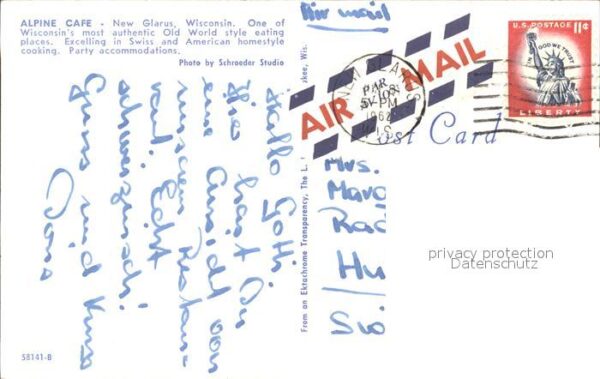 ALPINE CAFE - New Glarus, Wisconsin. One of
Wisconsin's most authentic Old World style eating
places. Excelling in Swiss and American homestyle
cooking. Party accommodations.
Photo by Schroeder Studio
Air mail
AIR MAIL
U.S. POSTAGE 11¢
IN GOD WE TRUST
LIBERTY
NEW GLARUS
PM
1962
WIS.
Post Card
Hallo Gotti. Du
hast
Ansicht von
unserem Restau-
rant. Echt
schweizerisch!
Gruss und Kuss
From an Ektachrome Transparency, The L.
kee, Wis.
Mrs.
Hu
privacy protection
Datenschutz
58141-B